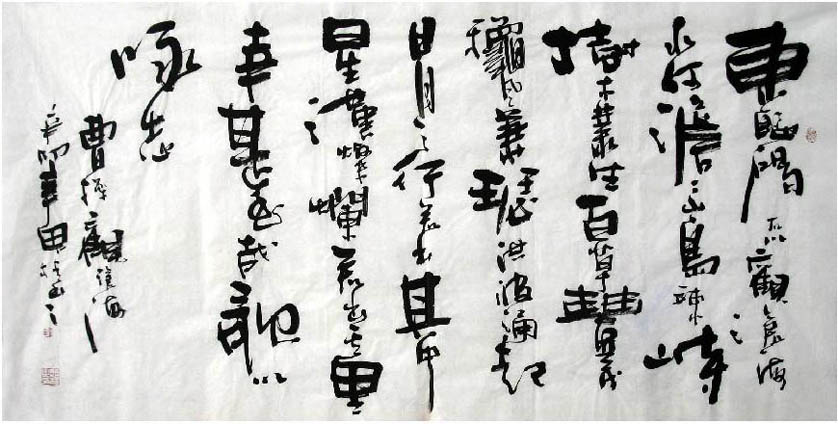 東臨碣石以觀滄海
水何澹々山島竦峙
樹木叢生百草豐茂
穐風蕭瑟洪波涌起
日月之行若出其中
星漢燦爛若出其里
幸甚至哉歌以
咏志
曹操觀滄海
辛卯